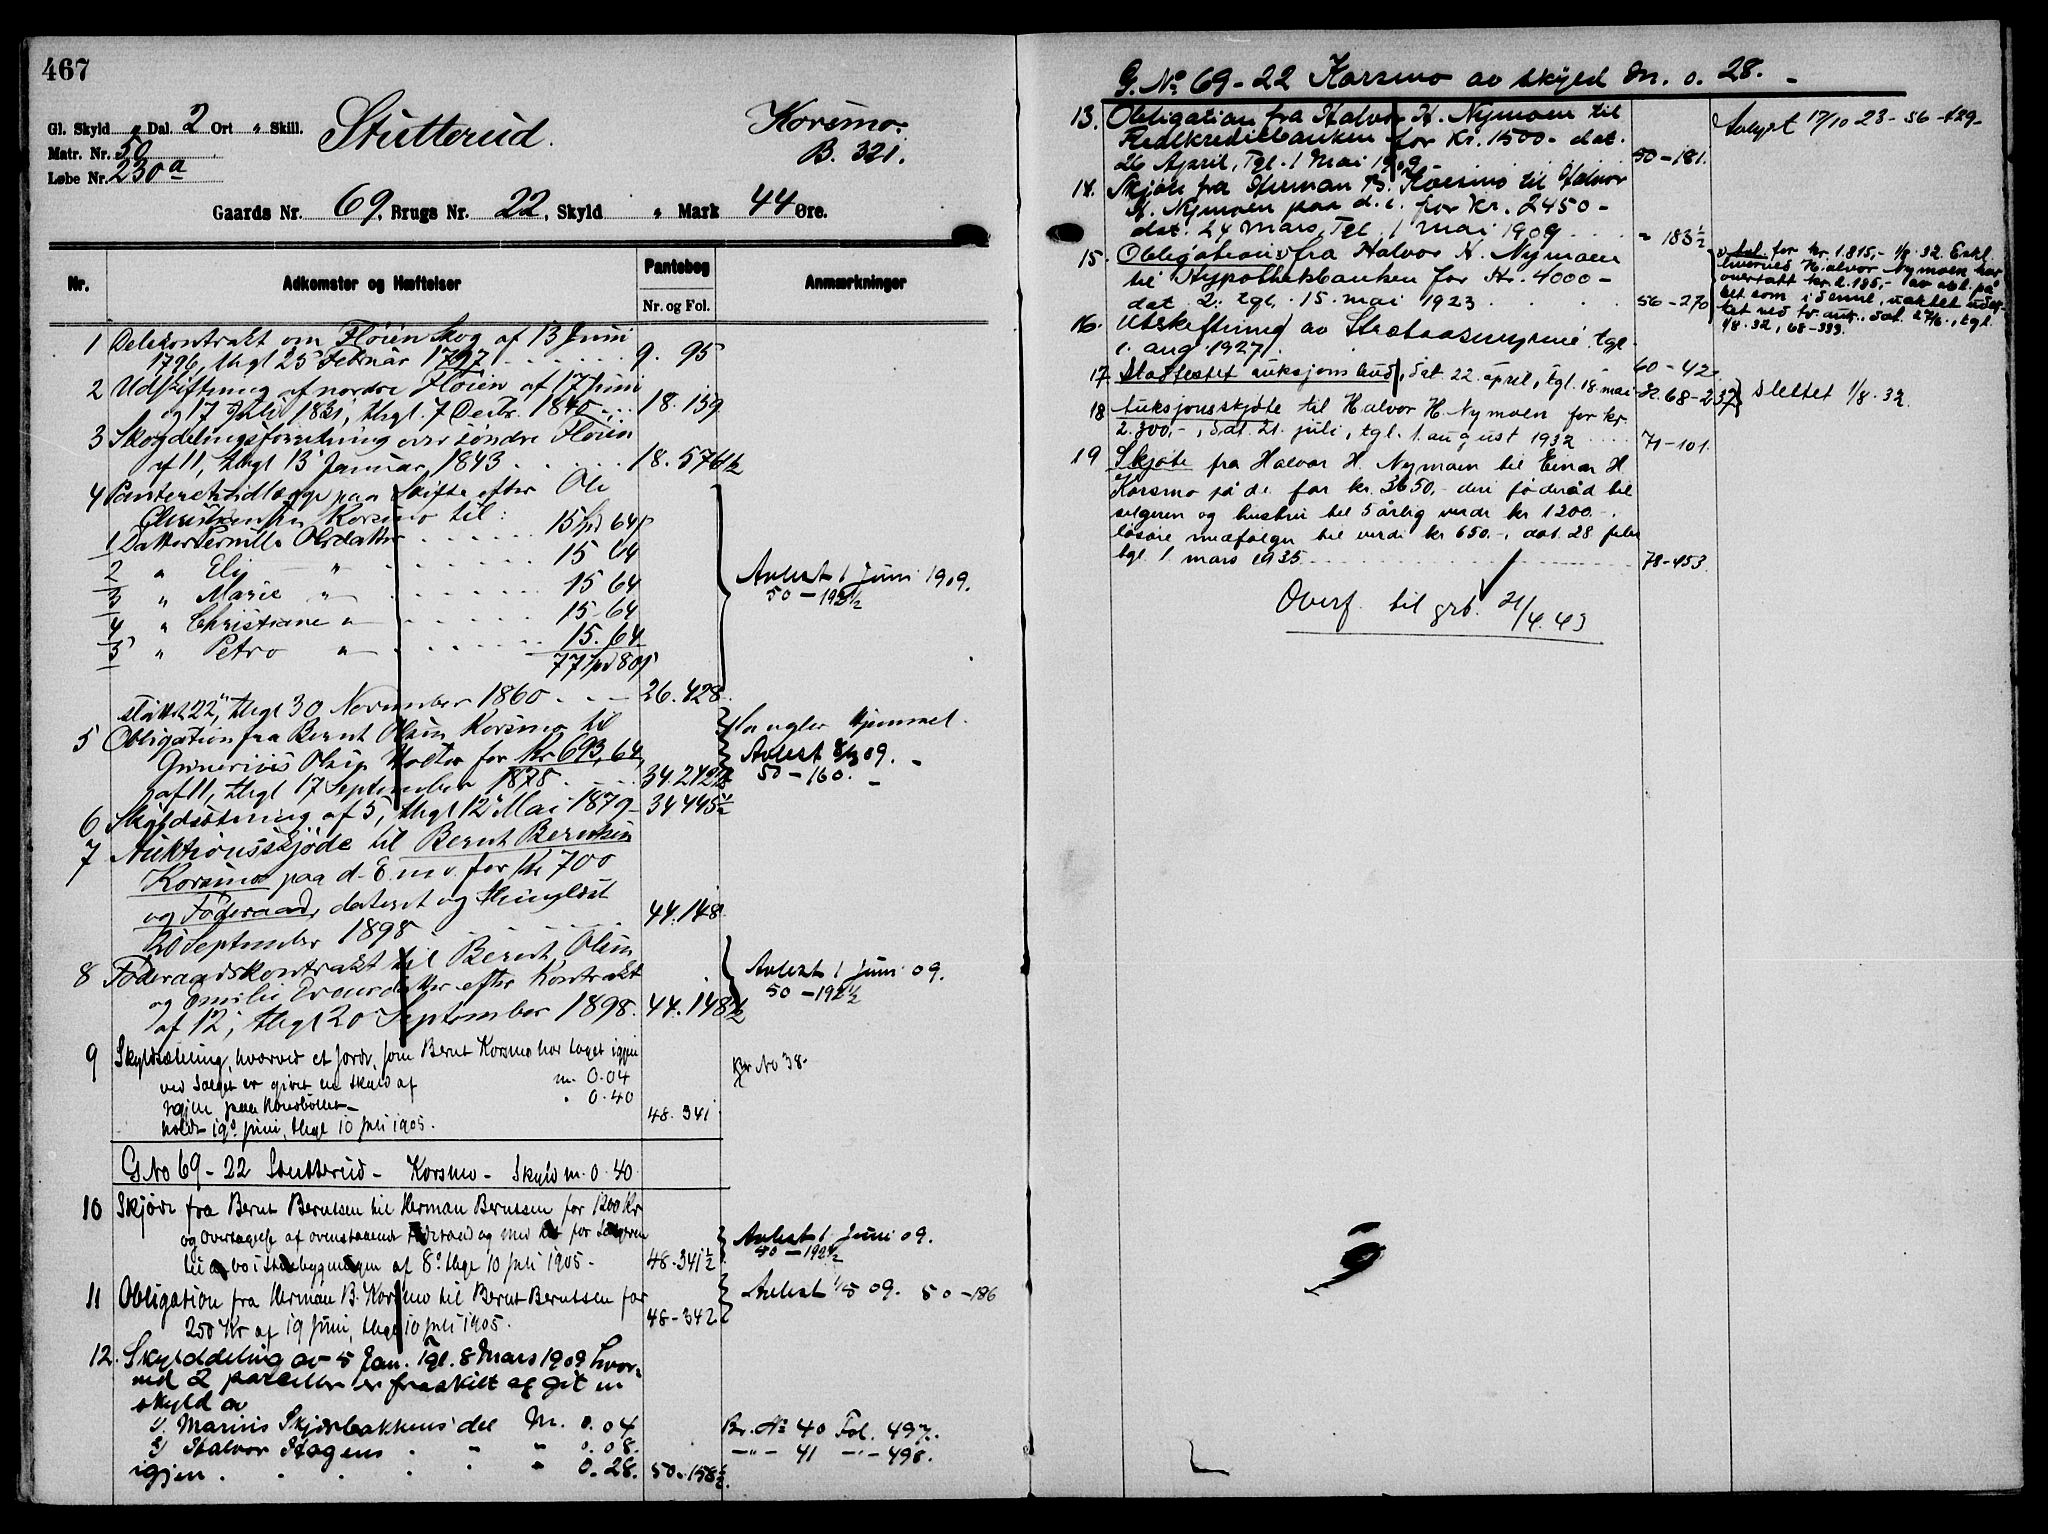 467
Gl. Skyld " Dal. 2 Ort " Skill.
Matr. Nr. 50
Løbe Nr. 230a
Stutterud.
Korsmo.
B. 321.
Gaards Nr. 69, Brugs Nr. 22, Skyld " Mark 44 Øre.
Nr. Adkomster og Hæftelser Pantebog Anmærkninger
Nr. og Fol.
1 Delekontrakt om Fløien Skog af 13 Juni
1796, thgl 25 Februar 1797 9. 95
2 Udskiftning af nordre Fløien af 17 Juni
og 17 Juli 1831, thgl. 7 Decbr. 1840 18. 159
3 Skogdelingsforretning over søndre Fløien
af 11, thgl 13 Januar 1843 18. 576½
4 Panteretsudlæg paa Skifte efter Ole
Christensen Korsmo til:
1 Datter Pernille Olsdatter 15 Spd 64 s
2 " Eli " 15 64
3 " Marie " 15 64
4 " Christiane " 15 64
5 " Petro " 15. 64
77 Spd 80 s
sluttet 22, thgl 30 November 1860 26. 428
Avlest 1 Juni 1909.
50 - 192½
5 Obligation fra Bernt Olsen Korsmo til
Gunerius Olsen for Kr 693,64,
af 11, thgl 17 September 1878 34. 242½
Mangler Hjemmel.
Avlest 8/3 09.
50 - 160.
6 Skyldsætning af 5, thgl 12 Mai 1879 34 445½
7 Auktionsskjøde til Bernt Berntsen
Korsmo paa d. E. m v. for Kr 700
og Føderaad, dateret og thinglæst
20 September 1898 44. 148
8 Føderaadskontrakt til Bernt Olsen
og Emilie Evensdatter efter Kontrakt
af 12, thgl 20 September 1898. 44. 148½
Avlest 1 Juni 09.
50 - 192½
9 Skyldsætning, hvorved et Jorde, som Bernt Korsmo har taget igjen
ved Salget er givet en Skyld af m. 0.04
Igjen paa Hovedbøllet " 0.40
holdt 19 Juni, thgl 10 Juli 1905. 48. 341
Br No 38.
G No 69 - 22 Stutterud - Korsmo - Skyld m. 0.40
10 Skjøde fra Bernt Berntsen til Herman Berntsen for 1200 Kr
og overtagelse af ovenstaaende Føderaad og med Ret for Sælgeren
til at bo i Stuebygningen af 8, thgl 10 Juli 1905 - 48-341½
Avlest 1 Juni 09.
50 - 192½
11 Obligation fra Herman B. Korsmo til Bernt Berntsen for
250 Kr af 19 Juni, thgl 10 Juli 1905. 48-342
Avlest 1/5 09. 50-186
12. Skylddeling av 5 Jan. Tgl. 8 Mars 1909 hvor-
ved 2 parceller er fraskilt og git en
skyld av
1/ Marius Skjærbakkens del M. 0.04 Br. No 40 Fol. 497.
2/ Halvor Hagens " " " 0.08. -"- 41 -"- 498.
igjen " 0.28. 50-158½
G. No 69-22 Korsmo av skyld m. 0. 28. -
13. Obligation fra Halvor H. Nymoen til
Realkreditbanken for Kr. 1500.- dat.
26 April, Tgl. 1 Mai 1909. 50-181.
Avlyst 17/10 23 - 56 - 429 -
14. Skjøte fra Herman B. Korsmo til Halvor
H. Nymoen paa d. e. for Kr. 2450 -
dat. 24 Mars, Tgl. 1 Mai 1909 " 183½
15. Obligation fra Halvor H. Nymoen
til Hypothekbanken for Kr. 4000 -
dat. 2. tgl. 15. mai 1923 56-270
Avl. for kr. 1.815,- 1/8. 32. Erkl.
hvorved Halvor Nymoen har
overtatt kr. 2.185,- av obl. på
det som i denne, uaktet uslet-
tet ved tv. auk., dat. 27/6., tgl.
1/8. 32, 68-333.
16. Utskiftning av Strætaasmyrene tgl.
1. aug. 1927. 60-42
17. Stadfestet auksjonsbud, dat. 22. april, tgl. 18. mai 32. 68-237 slettet 1/8. 32.
18 Auksjonsskjøte til Halvor H. Nymoen for kr.
2.300,-, dat. 21. juli, tgl. 1. august 1932 71-101.
19 Skjøte fra Halvor H. Nymoen til Einar H.
Korsmo på d. e. for kr. 3650,- deri føderåd til
selgeren og hustru til 5 årlig verdi kr 1200.-.
løsøre medfølger til verdi kr 650.-, dat. 28. febr
tgl. 1. mars 1935 78-453
Overf. til grb. 21/4.43